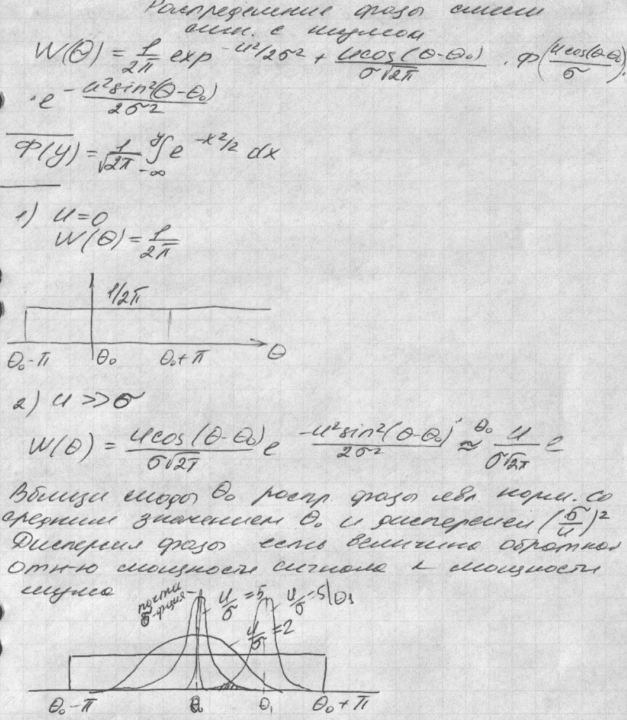 Распределение фазы смеси
сигн. с шумом
W(θ) = 1/2π exp^{-u²/2σ²} + u cos(θ-θ₀)/σ√2π · Ф(u cos(θ-θ₀)/σ)·
· e^{- u² sin²(θ-θ₀)/2σ²}
Ф(y) = 1/√2π ∫_{-∞}^{y} e^{-x²/2} dx
1) u=0
W(θ) = 1/2π
1/2π
θ₀-π θ₀ θ₀+π θ
2) u >> σ
W(θ) = u cos(θ-θ₀)/σ√2π e^{-u² sin²(θ-θ₀)/2σ²} ≈ u/σ√2π e
Вблизи моды θ₀ распр фазы явл норм. со
средним значением θ₀ и дисперсией (σ/u)²
Дисперсия фазы есть величина обратная
отн-ю мощности сигнала к мощности
шума
почти δ-фция u/σ = 5 u/σ = 5|θ₁
u/σ = 2
θ₀-π θ₀ θ₁ θ₀+π